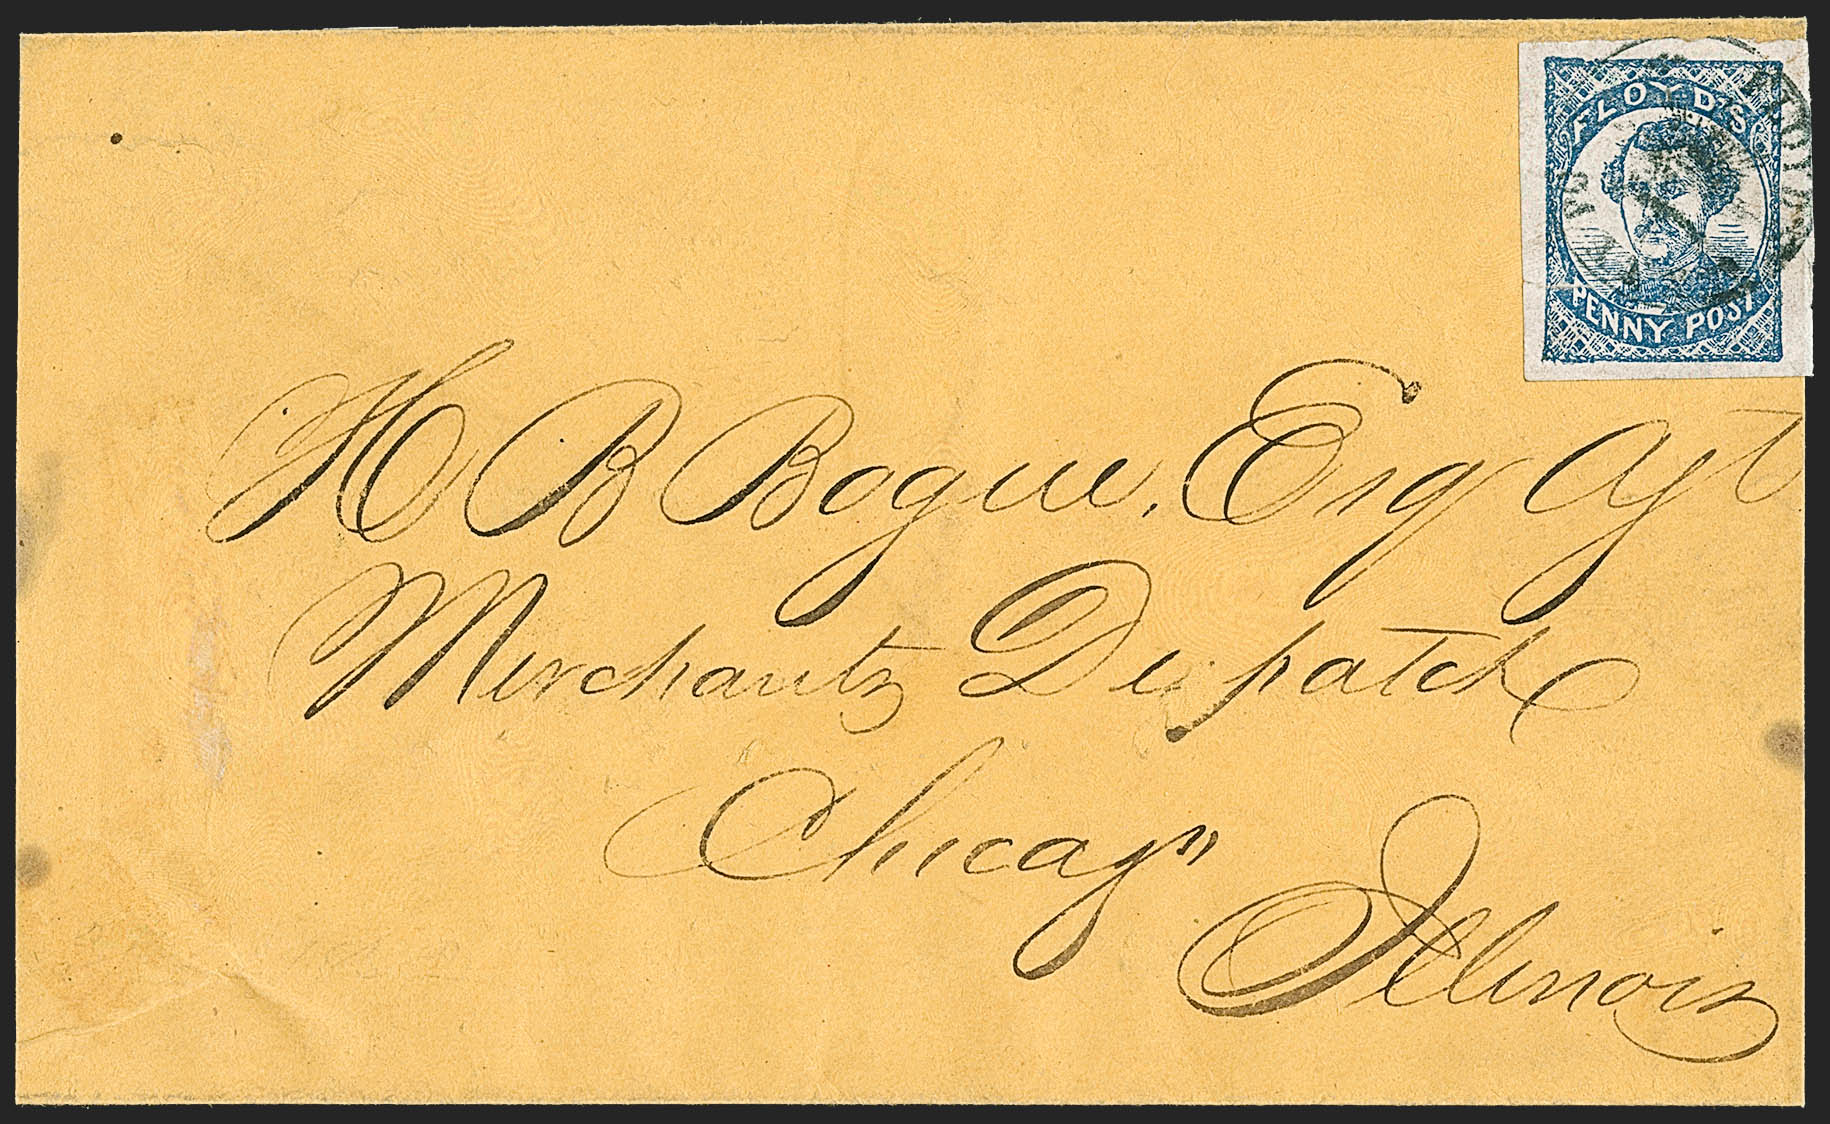 FLOYD'S
PENNY POST
H B Bogue, Esq Agt
Merchants Dispatch
Chicago
Illinois